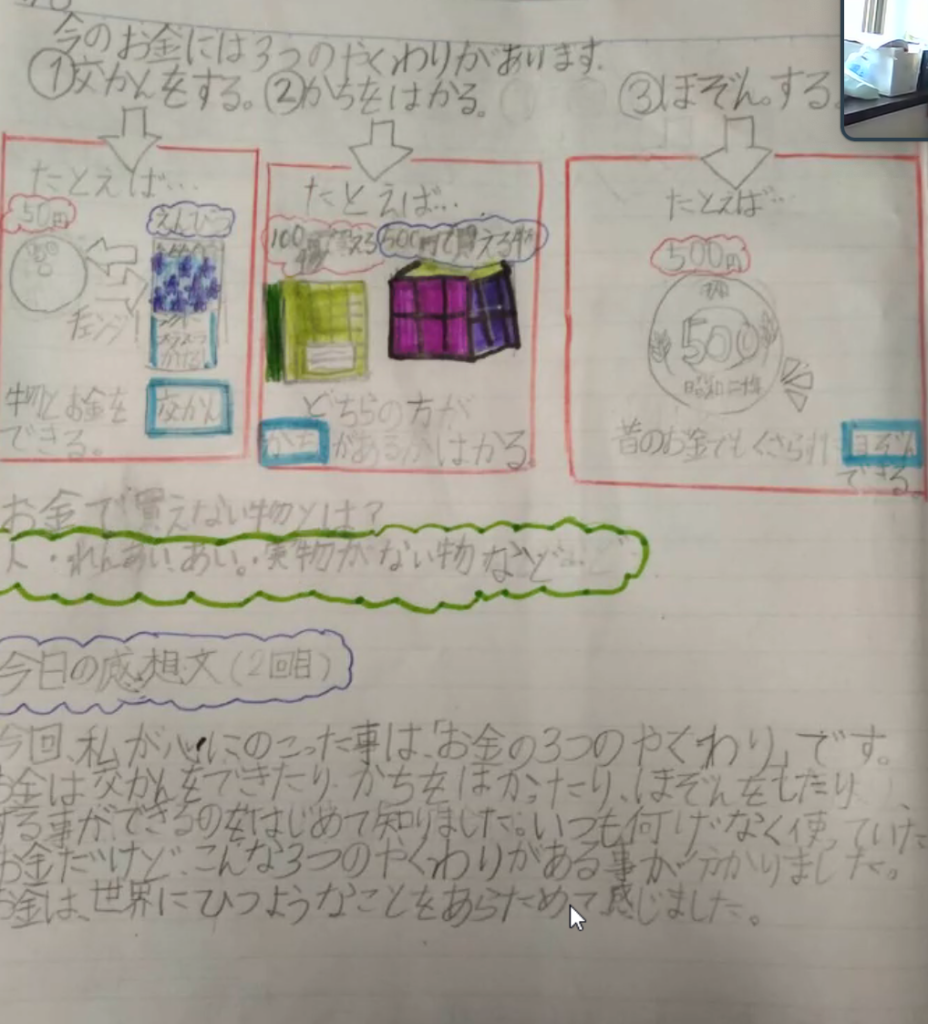 今のお金には3つのやくわりがあります.
①交かんをする。②かちをはかる。 ③ほぞん。する
たとえば…
50円
えんぴつ
チェンジ
物とお金を 交かん
できる。
たとえば…
500円で買える物
どちらの方が
かち があるかはかる。
たとえば…
500円
500
昔のお金でもくさらず ほぞん
できる。
お金で買えない物とは?
人・れんあい.あい。・実物がない物など…
今日の感想文(2回目)
今回、私が心にのこった事は、「お金の3つのやくわり」です。
お金は交かんをできたり、かちをはかったり、ほぞんをしたり
する事ができるのをはじめて知りました。いつも何げなく使っていた
お金だけど、こんな3つのやくわりがある事が分かりました。
お金は、世界にひつようなことをあらためて感じました。